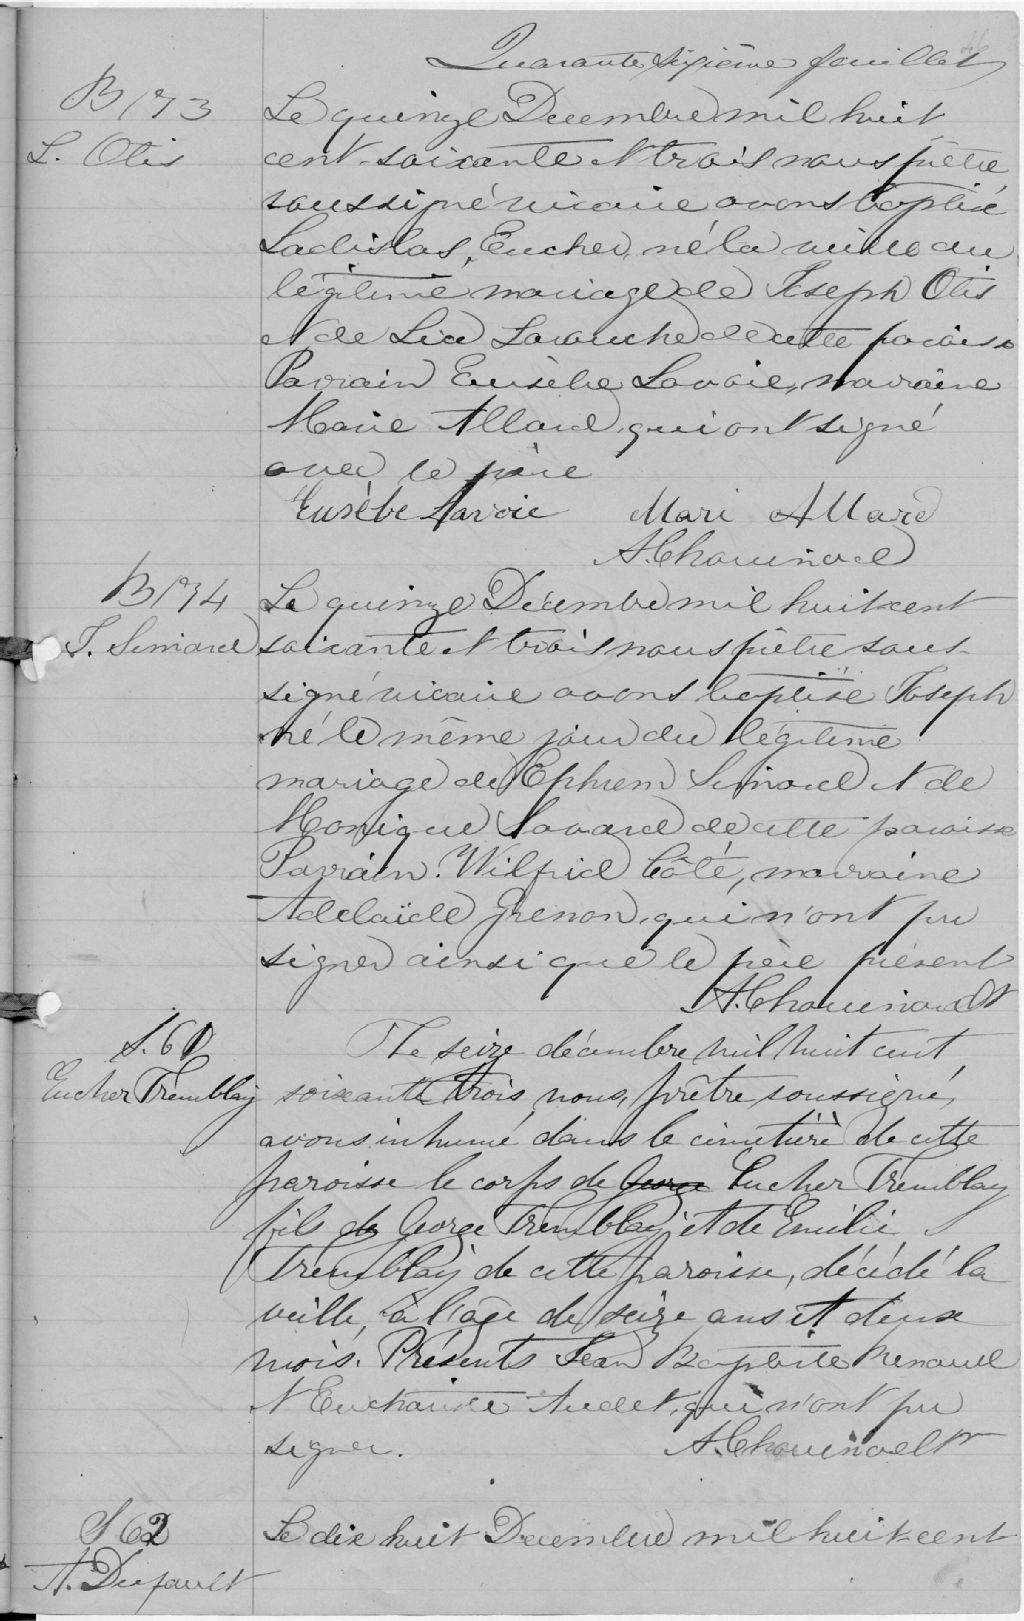 Quarante sixième feuillet
B 173
L. Otis
Le quinze Decembre mil huit
cent-soixante et trois nous prêtre
soussigné vicaire avons baptisé
Ladislas, Eucher, né la veille du
légitime mariage de Joseph Otis
et de Lea Larouche de cette paroisse
Parrain Eusèbe Lavoie, marraine
Marie Allard, qui ont signé
avec le père
Eusèbe Lavoie Mari Allard
A. Chouinard
B 174
J. Simard
Le quinze Décembre mil huit cent
soixante et trois nous prêtre sous-
signé vicaire avons baptisé Joseph
né le même jour du légitime
mariage de Ephrem Simard et de
Monique Savard de cette paroisse
Parrain. Wilfrid Côté, marraine
Adelaïde Grenon, qui n'ont pu
signer ainsi que le père présent
A. Chouinard Pt
S. 61
Eucher Tremblay
Le seize décembre mil huit cent
soixante trois, nous, prêtre soussigné,
avons inhumé dans le cimetière de cette
paroisse le corps de George Eucher Tremblay
fils de George Tremblay et de Emilie
Tremblay de cette paroisse, décédé la
veille, à l'age de seize ans et deux
mois. Présents Jean Baptiste Renaud
et Euchariste Audet, qui n'ont pu
signer. A. Chouinard Ptr
S 62
A. Dufault
Le dix huit Decembre mil huit-cent